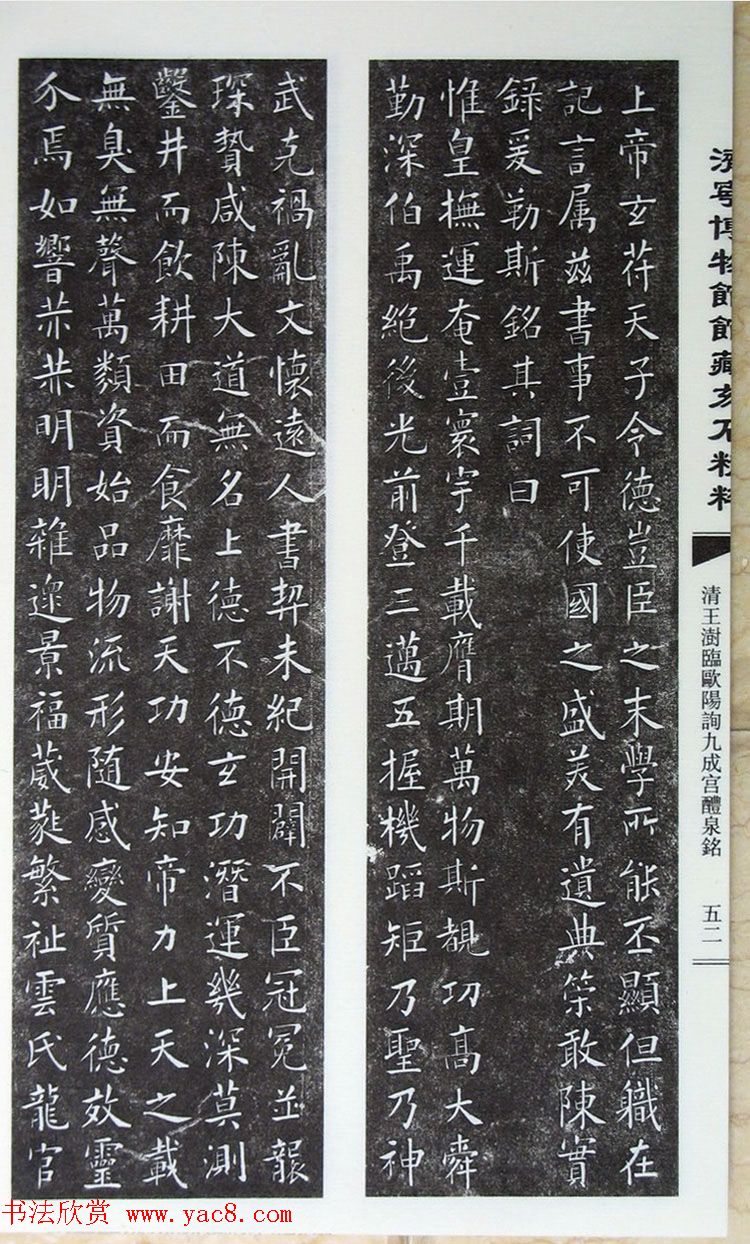 寧博物館館藏石
清王澍臨歐陽詢九成宮醴泉銘 五二
上帝玄苻天子令德豈臣之末學所能丕顯但職在
記言属茲書事不可使國之盛美有遺典策敢陳實
録爰勒斯銘其詞曰
惟皇撫運奄壹寰宇千載膺期萬物斯覩功高大舜
勤深伯禹絶後光前登三邁五握機蹈矩乃聖乃神
武克禍亂文懷遠人書契未紀開闢不臣冠冕並襲
琛贄咸陳大道無名上德不德玄功潛運幾深莫測
鑿井而飲耕田而食靡謝天功安知帝力上天之載
無臭無聲萬類資始品物流形随感變質應德效靈
介焉如響赫赫明明雜遝景福葳蕤繁祉雲氏龍官
书法欣赏 www.yac8.com